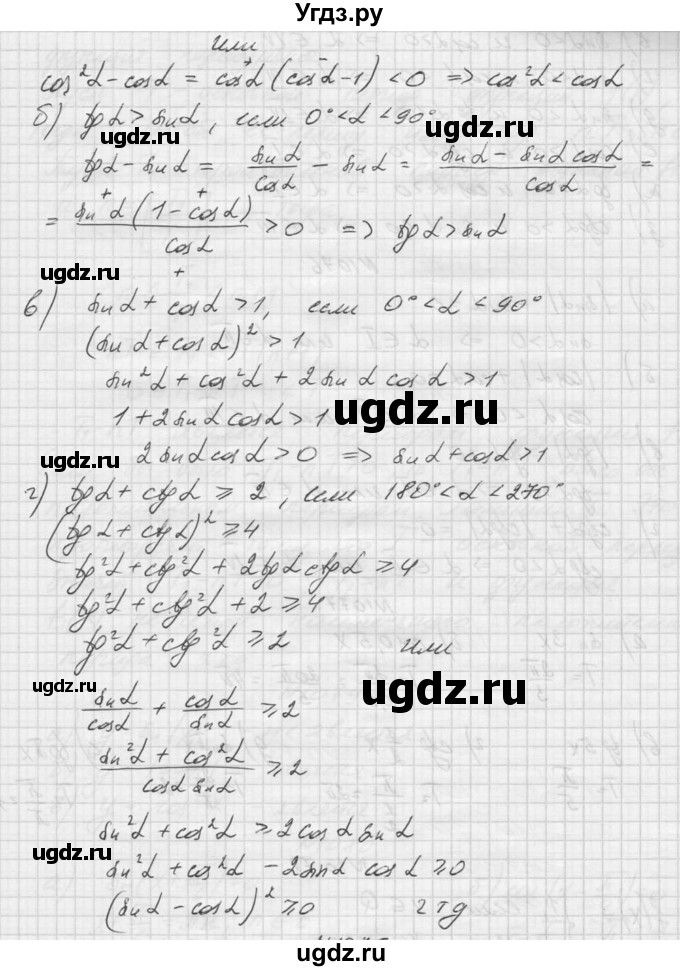 Угдз.ру
или
cos²α - cosα = cosα (cosα - 1) < 0 ⇒ cos²α < cosα
б) tgα > sinα, если 0° < α < 90°
ugdz.ru ugdz.ru
tgα - sinα = sinα/cosα - sinα = (sinα - sinα cosα)/cosα =
= sinα (1 - cosα)/cosα > 0 ⇒ tgα > sinα
ugdz.ru ugdz.ru
в) sinα + cosα > 1, если 0° < α < 90°
(sinα + cosα)² > 1
sin²α + cos²α + 2 sinα cosα > 1
1 + 2 sinα cosα > 1
ugdz.ru
2 sinα cosα > 0 ⇒ sinα + cosα > 1
ugdz.ru
г) tgα + ctgα ≥ 2, если 180° < α < 270°
(tgα + ctgα)² ≥ 4
tg²α + ctg²α + 2tgα ctgα ≥ 4
tg²α + ctg²α + 2 ≥ 4
tg²α + ctg²α ≥ 2 или
ugdz.ru ugdz.ru
sinα/cosα + cosα/sinα ≥ 2
(sin²α + cos²α)/(cosα sinα) ≥ 2
sin²α + cos²α ≥ 2cosα sinα
ugdz.ru
sin²α + cos²α - 2sinα cosα ≥ 0
(sinα - cosα)² ≥ 0 чтд
©ugdz.ru